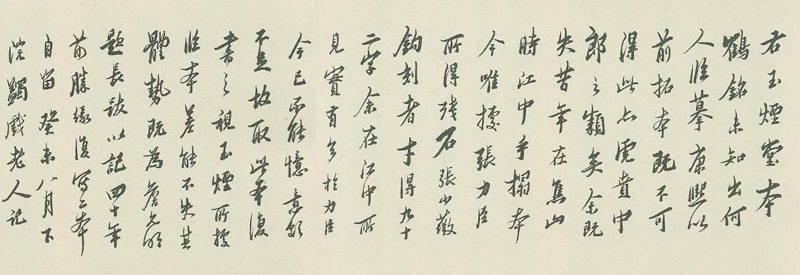 右玉煙堂本
鶴銘未知出何
人臨摹康熙以
前拓本既不可
得此亦虎賁中
郎之類矣余既
失昔年在焦山
時江中手搨本
今唯據張力臣
所得殘石張
鈎刻者才得九十
二字余在江中所
見實有多於力臣
今已不能憶意欲
不足故取此復
書之視玉煙所據
臨本差能不失其
體勢既為允明
題長跋以記四十年
前勝緣復寫二本
自留癸未八月下
浣蠲戲老人記